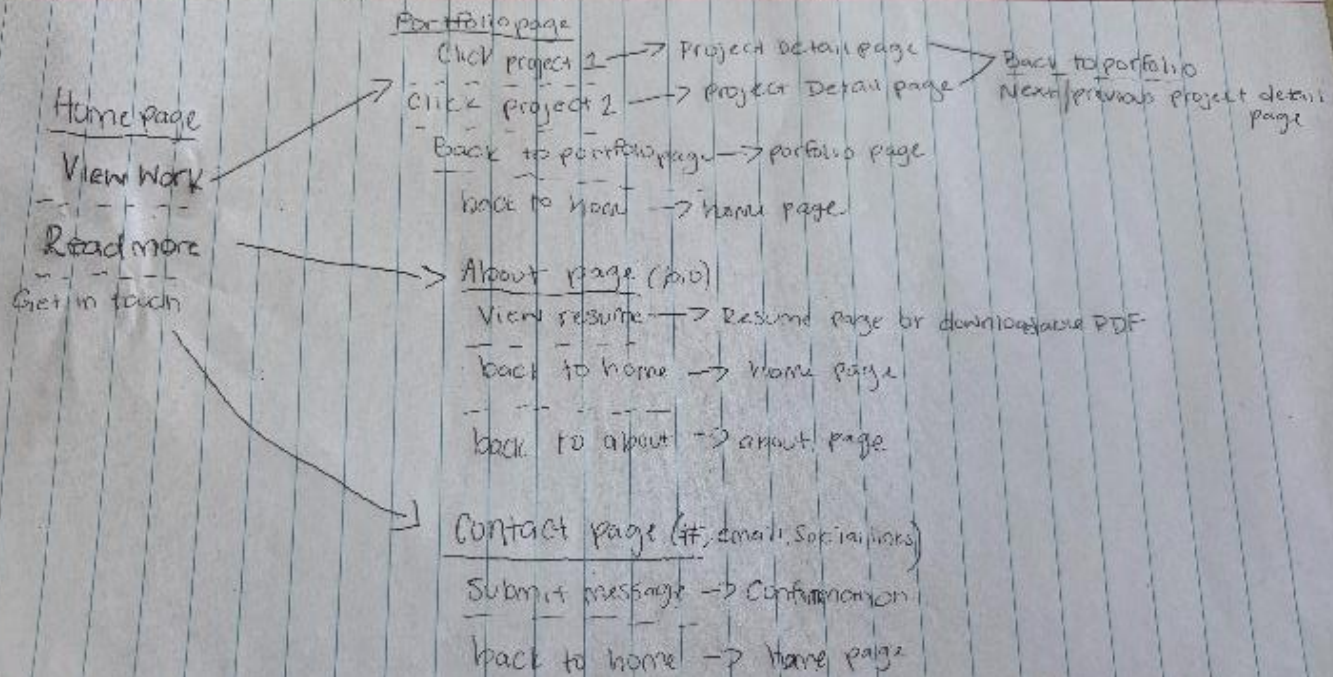 Home page
View Work
Read more
Get in touch
Portfolio page
Click project 1 → Project Detail page
Click project 2 → Project Detail page
Back to porfolio
Next/previous project detail
page
Back to portfolio page → porfolio page
back to hom → home page
About page (bio)
View resume → Resume page or downloadable PDF
back to home → Home page
back to about → about page
Contact page (#, email, Social links)
Submit message → Confirmation
back to home → Home page